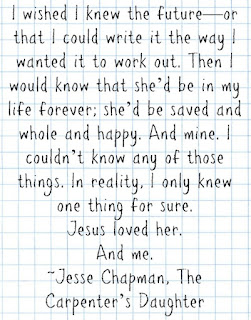 I wished I knew the future—or
that I could write it the way I
wanted it to work out. Then I
would know that she'd be in my
life forever; she'd be saved and
whole and happy. And mine. I
couldn't know any of those
things. In reality, I only knew
one thing for sure.
Jesus loved her.
And me.
~Jesse Chapman, The
Carpenter's Daughter